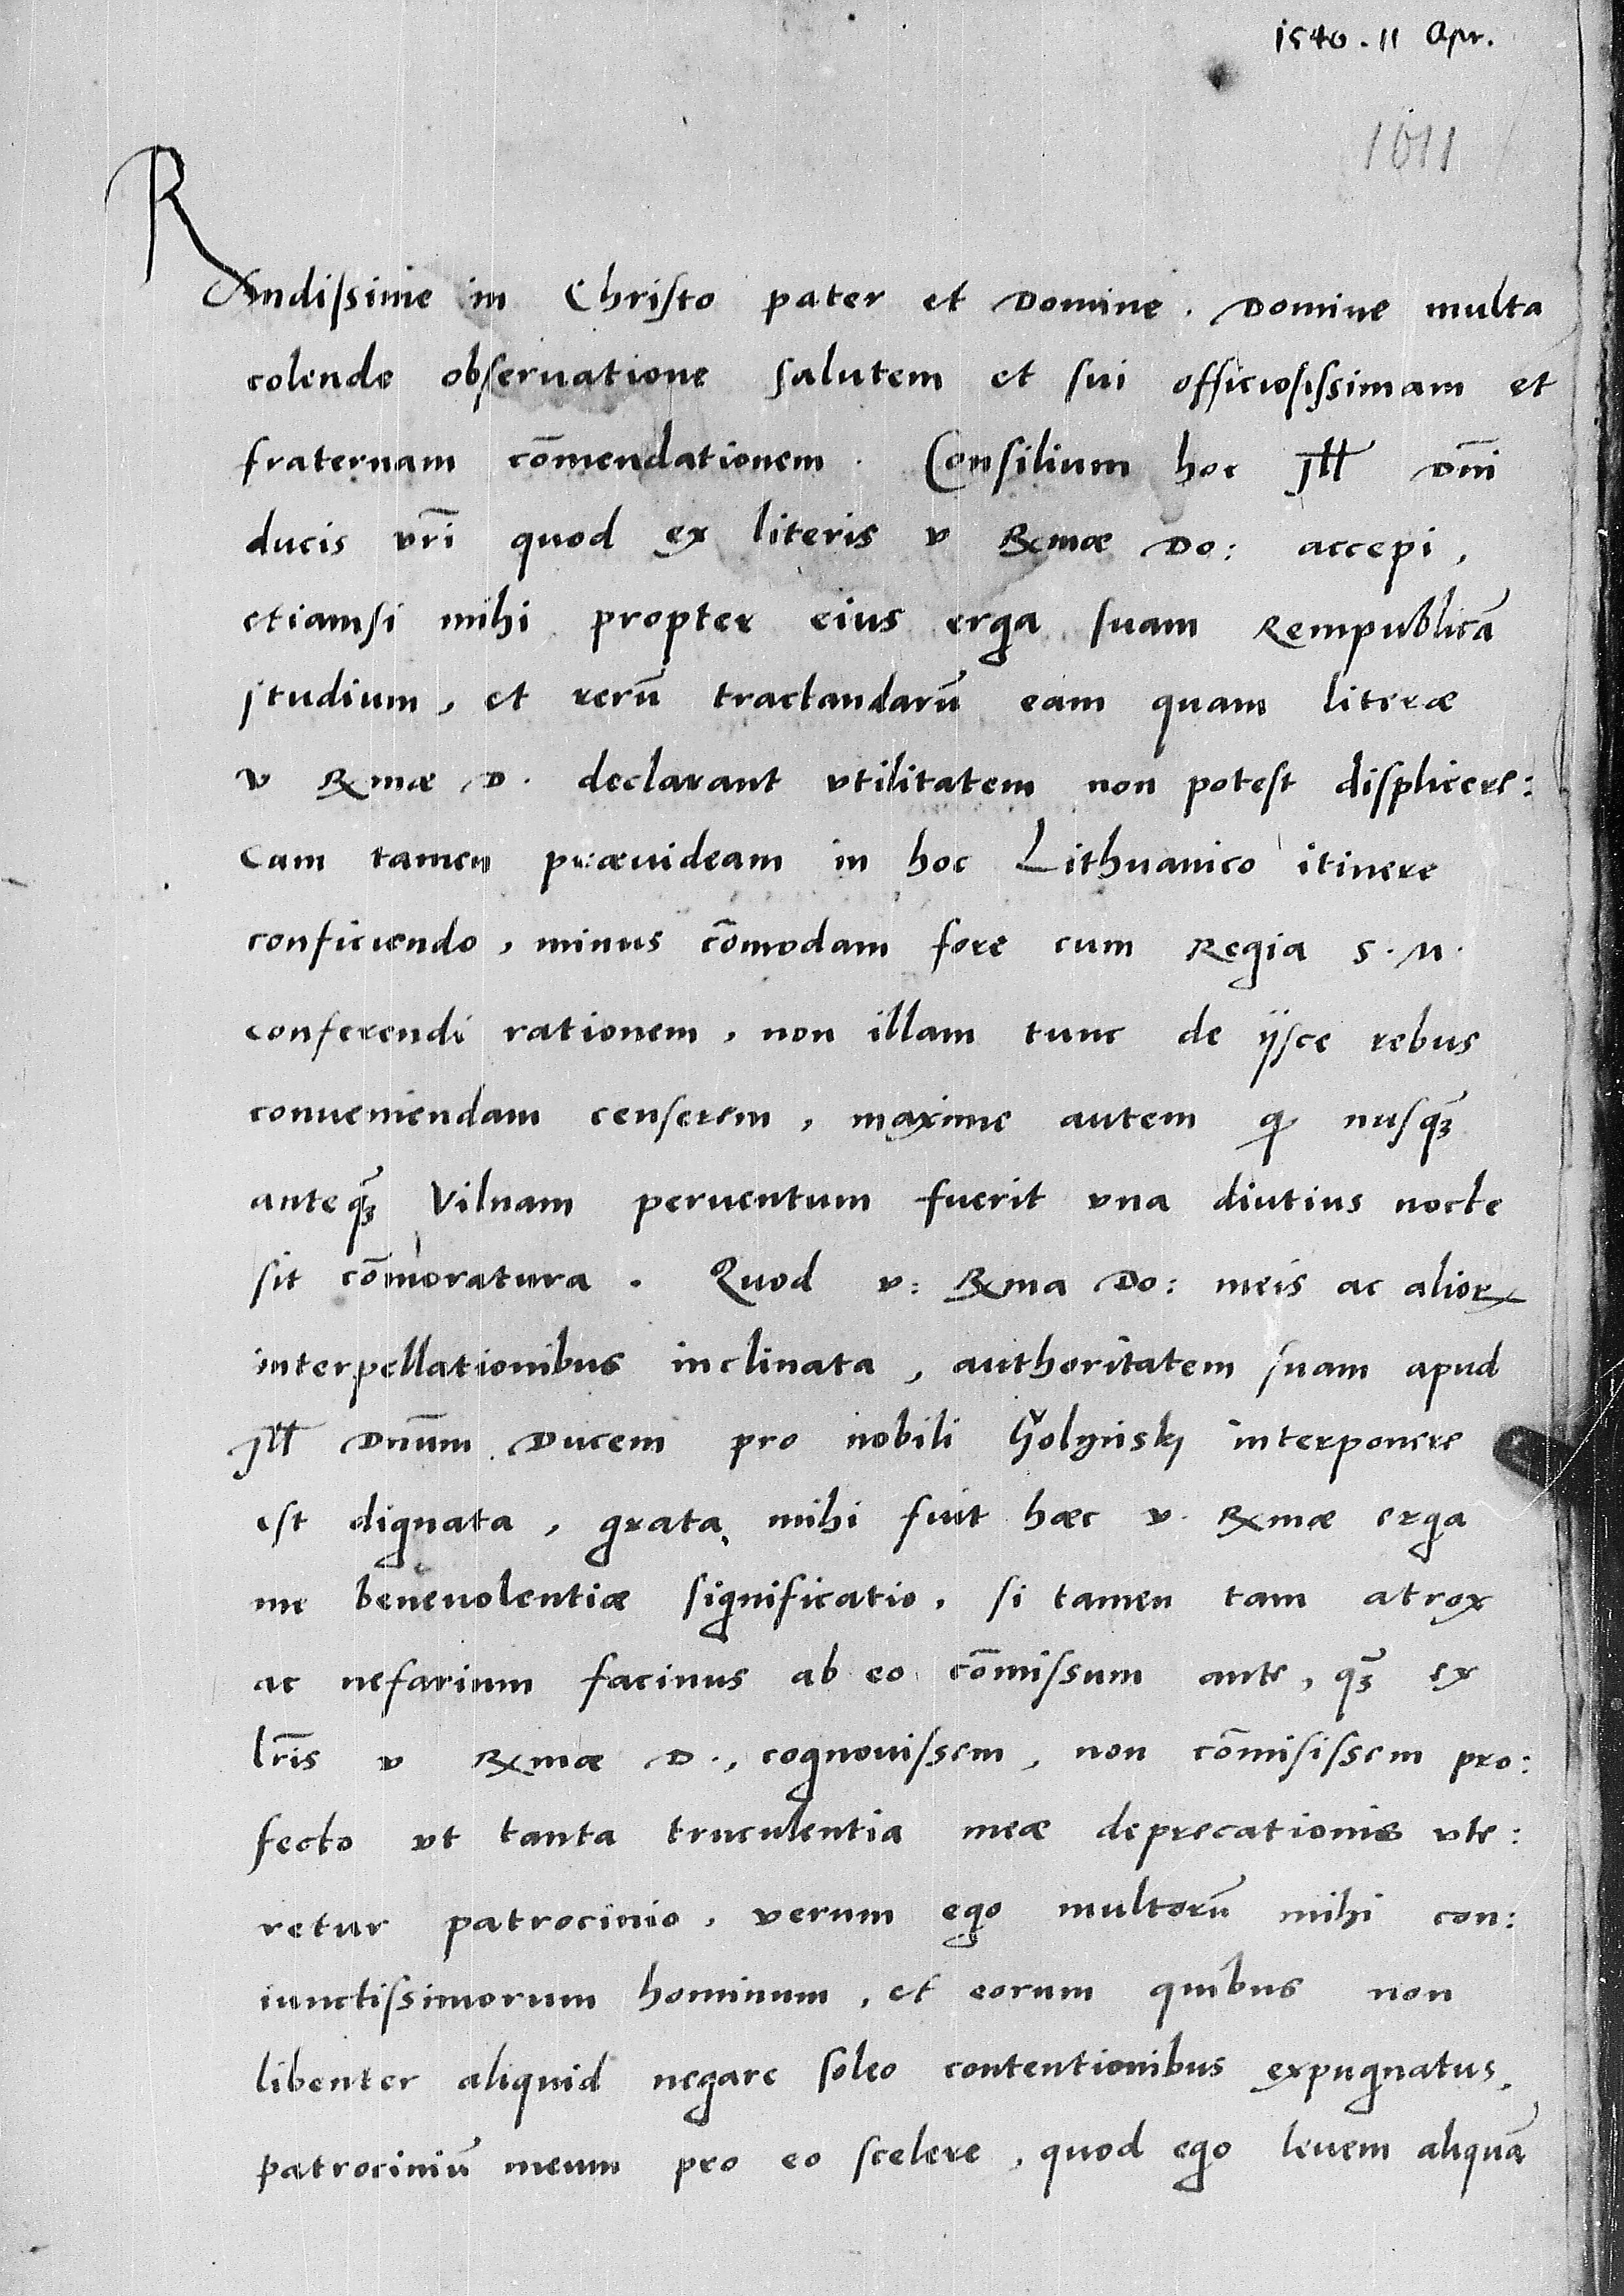 1540 . 11 Apr.
1011
R
Rndissime in Christo pater et Domine . Domine multa
colende obseruatione salutem et sui officiosissimam et
fraternam cōmendationem . Consilium hoc Jll dn̄i
ducis vr̄i quod ex literis v Rmæ Do: accepi ,
etiamsi mihi propter eius erga suam Rempublicā
studium , et rerū tractandarū eam quam literæ
v Rmæ D . declarant vtilitatem non potest displicere :
Cum tamen præuideam in hoc Lithuanico itinere
conficiendo , minus cōmodam fore cum Regia S . M .
conferendi rationem , non illam tunc de ijsce rebus
conueniendam censerem , maxime autem ꝙ nusqꝫ̄
anteqꝫ̄ Vilnam peruentum fuerit vna diutius nocte
sit cōmoratura . Quod v : Rma Do : meis ac alioꝝ
interpellationibus inclinata , authoritatem suam apud
Jll Dn̄um Ducem pro nobili Holynsky interponere
est dignata , grata mihi fuit hæc v . Rmæ erga
me beneuolentiæ significatio . si tamen tam atrox
ac nefarium facinus ab eo cōmissum ante , qꝫ̄ ex
lr̄is v Rmæ D . , cognouissem , non cōmisissem pro :
fecto vt tanta truculentia meæ deprecationis vte :
retur patrocinio . verum ego multorū mihi con :
iunctissimorum hominum , et eorum quibus non
libenter aliquid negare soleo contentionibus expugnatus ,
patrociniū meum pro eo scelere , quod ego leuem aliquā